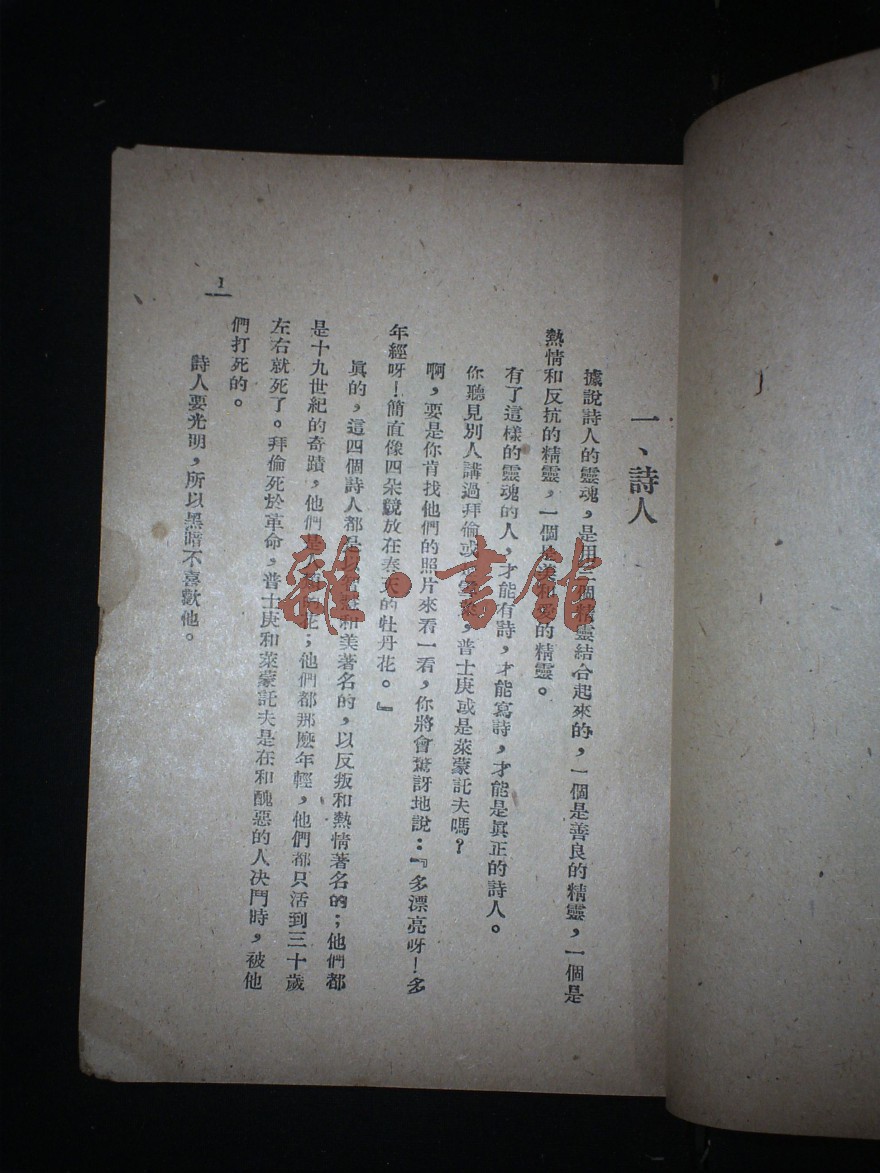 一、詩人
據說詩人的靈魂，是用三個精靈結合起來的，一個是善良的精靈，一個是
熱情和反抗的精靈，一個是美和愛的精靈。
有了這樣的靈魂的人，才能有詩，才能寫詩，才能是眞正的詩人。
你聽見別人講過拜倫或，普士庚或是萊蒙託夫嗎？
啊，要是你肯找他們的照片來看一看，你將會驚訝地說：『多漂亮呀！多
年經呀！簡直像四朵競放在春天的牡丹花。』
眞的，這四個詩人都是以和美著名的，以反叛和熱情著名的；他們都
是十九世紀的奇蹟，他們是花；他們都那麽年輕，他們都只活到三十歲
左右就死了。拜倫死於革命，普士庚和萊蒙託夫是在和醜惡的人决鬥時，被他
們打死的。
詩人要光明，所以黑暗不喜歡他。
1
雜·書館